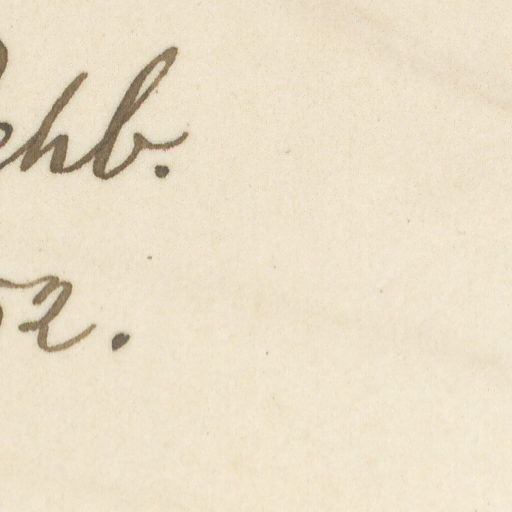 ehb.
52.